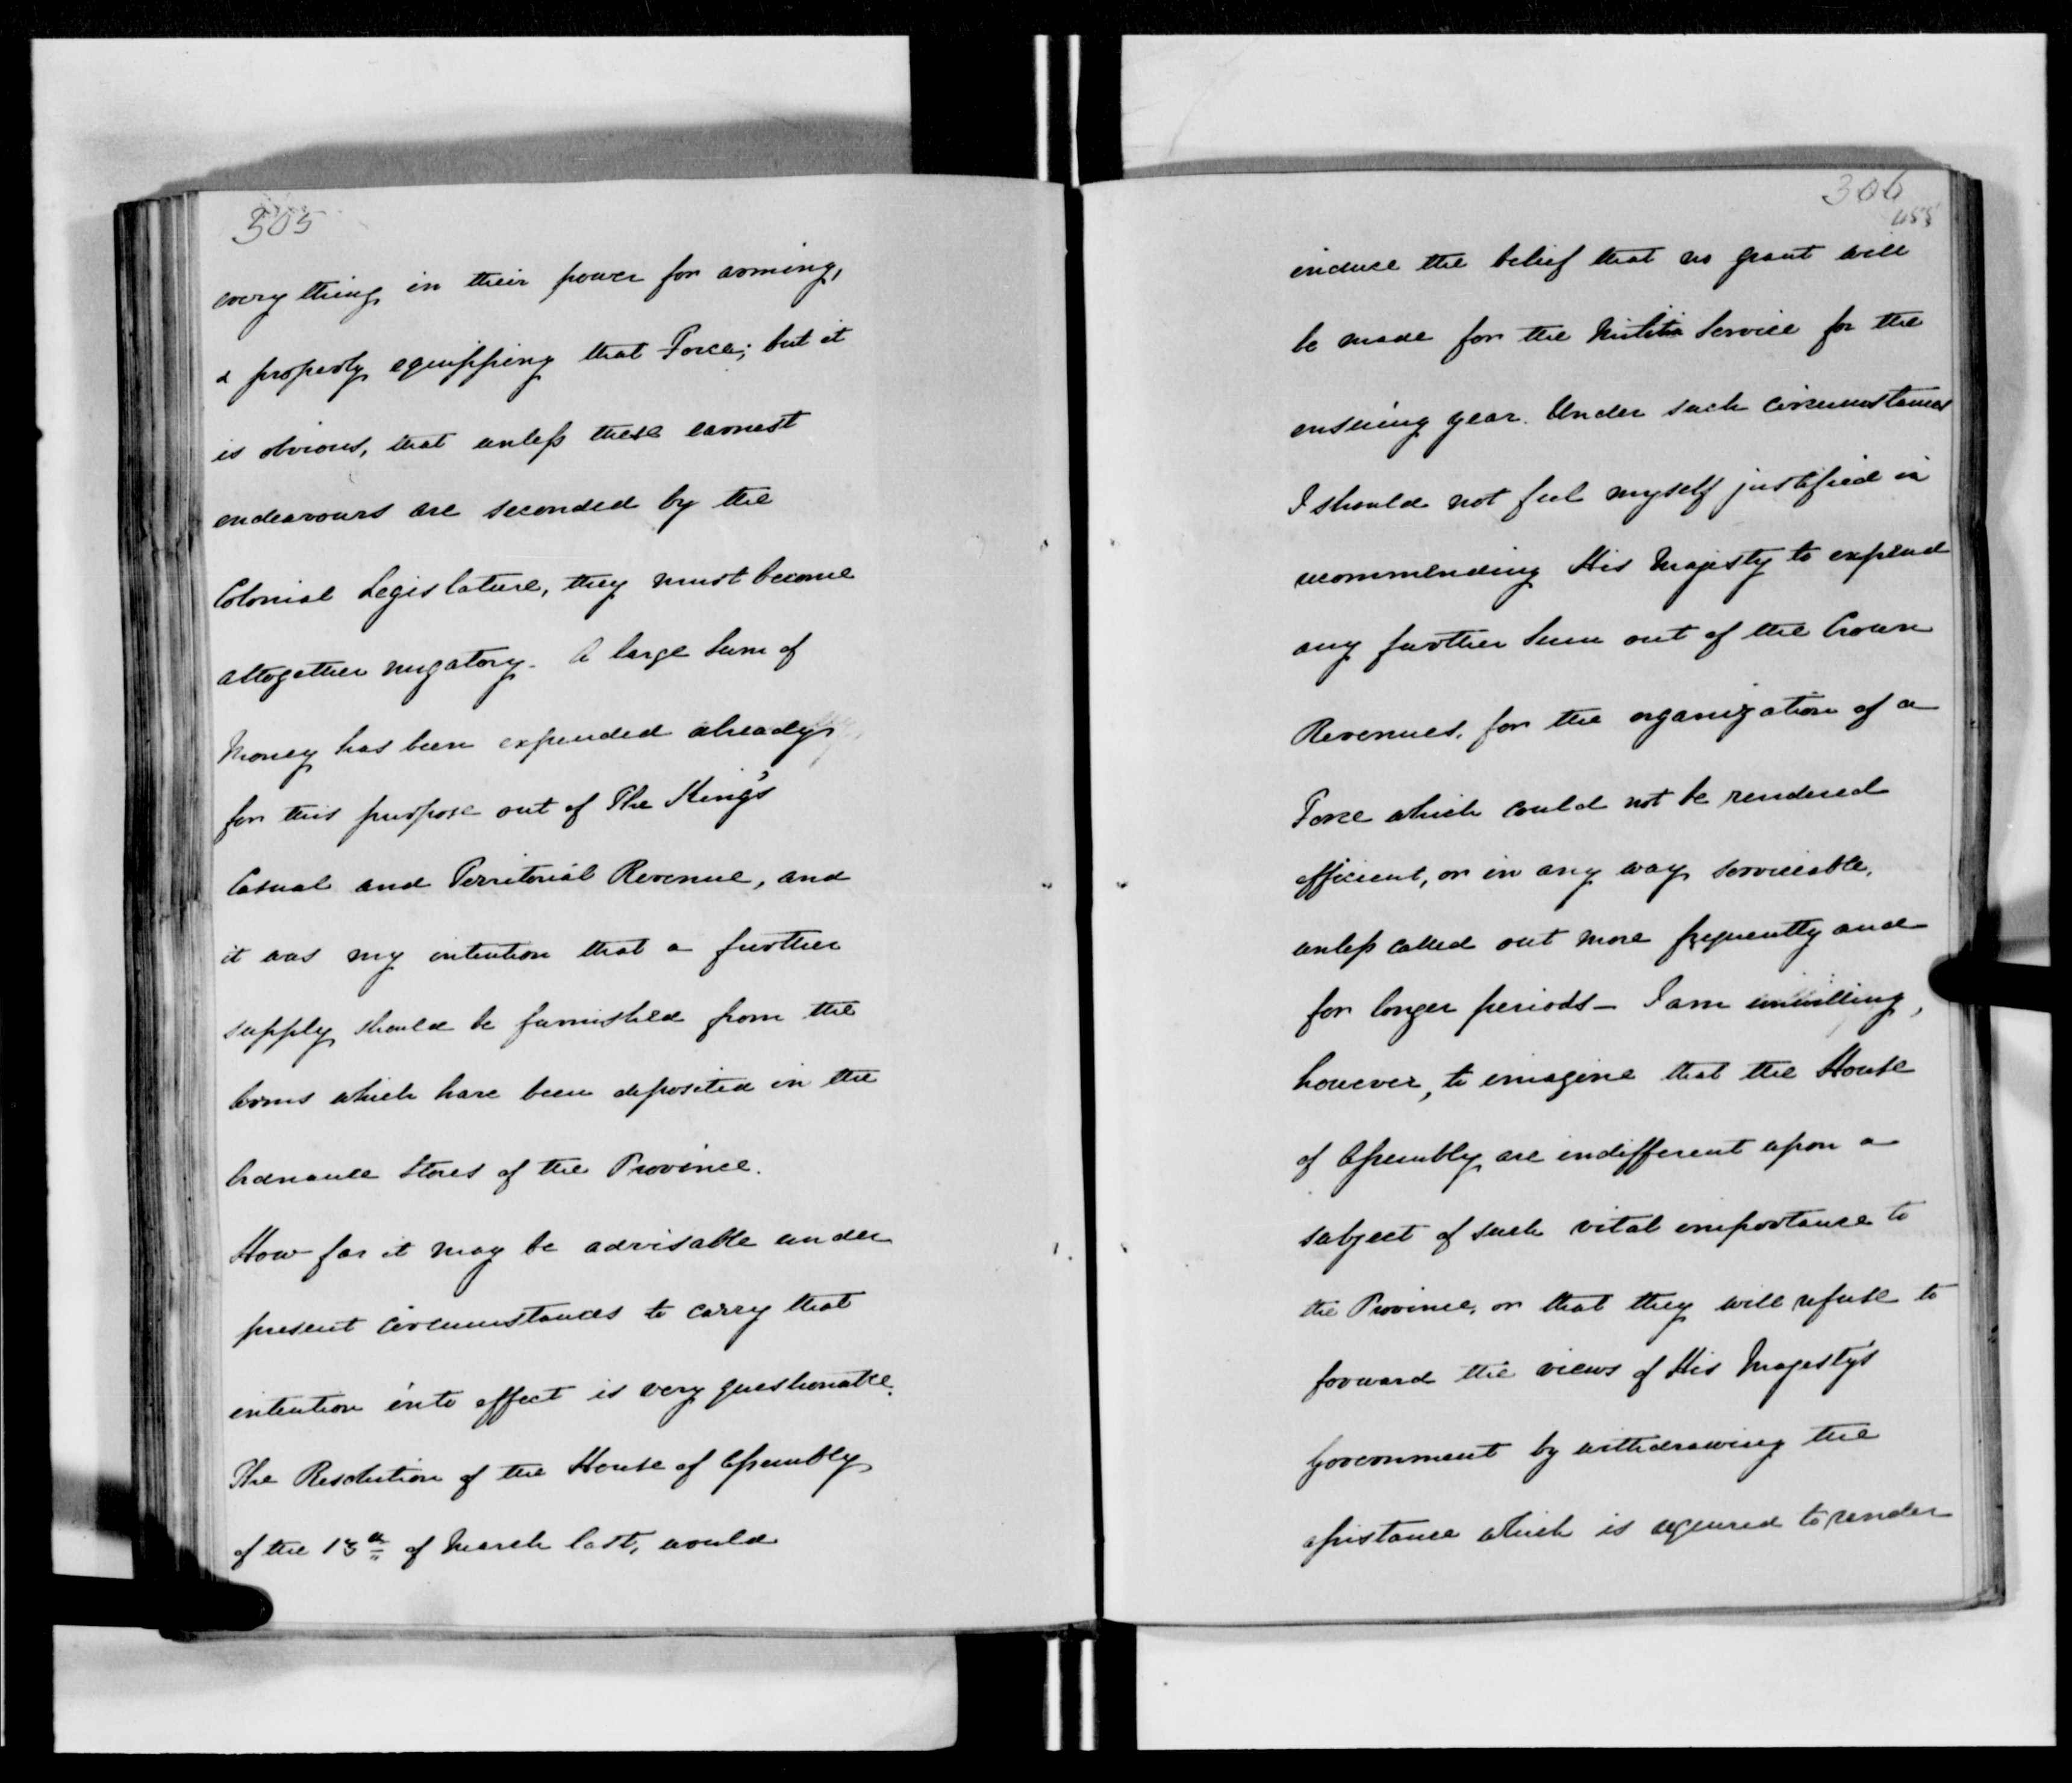 305
every thing in their power for arming,
& properly equipping that Force; but it
is obvious, that unless these earnest
endeavours are seconded by the
Colonial Legislature, they must become
altogether nugatory. A large Sum of
Money has been expended already
for this purpose out of The King's
Casual and Territorial Revenue, and
it was my intention that a further
supply should be furnished from the
Arms which have been deposited in the
Ordnance Stores of the Province.
How far it may be advisable under
present circumstances to carry that
intention into effect is very questionable.
The Resolution of the House of Assembly
of the 13th of March last, would
306
455
induce the belief that no grant will
be made for the Militia Service for the
ensuing year. Under such circumstances
I should not feel myself justified in
recommending His Majesty to expend
any further Sum out of the Crown
Revenues, for the organization of a
Force which could not be rendered
efficient, or in any way serviceable,
unless called out more frequently and
for longer periods - I am unwilling,
however, to imagine that the House
of Assembly are indifferent upon a
subject of such vital importance to
the Province, or that they will refuse to
forward the views of His Majesty's
Government by withdrawing the
assistance which is required to render